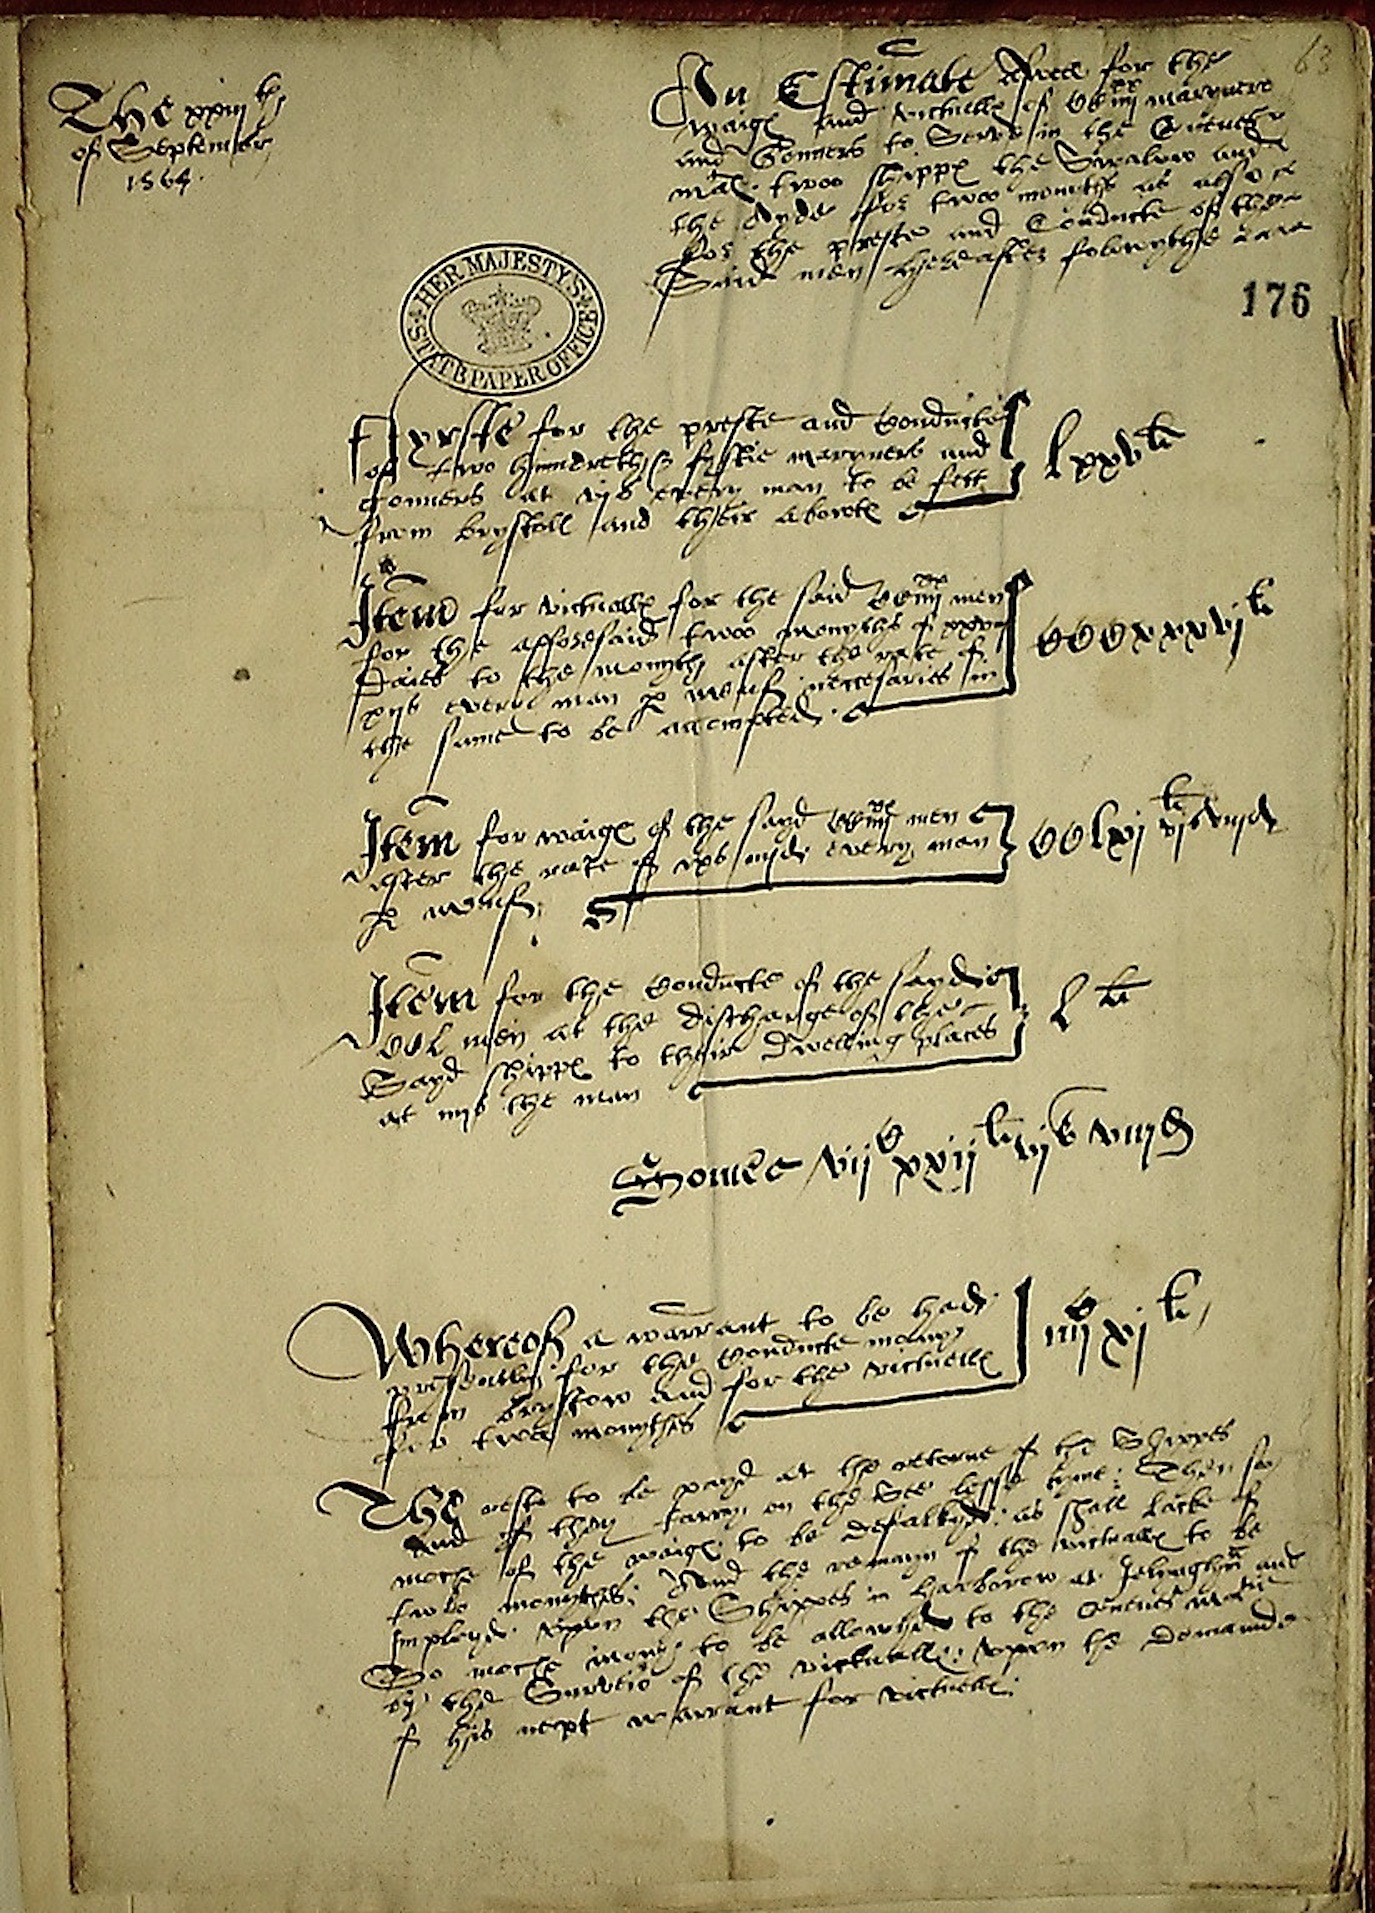 The xxiij th
of September
1564.
An Estimate for the
waigs and victualls of CCiiij xx maryners
and Gonners to Serve in the Quenes
ma. twoo shipps the Swalow and
the Ayde for twoo months as also
for the preste and Conducte of the
Said men hereafter folowythe
63
176
HER MAJESTY'S STATE PAPER OFFICE
Fyrste for the preste and Conducte
of two hundreth & fystie maryners and
gonners at vjs every man to be fett
from brystoll and their abowts
lxxv li
Item for victualls for the said CCiiij xx men
for the afforesaid twoo monyths of xxviij
Daies to the monyth after the rate of
xijs every man p mens necesaries in
the same to be accompted
CCCxxxvj li
Item for waigs of the sayd CCiiij xx men
after the rate of ixs iiijd every man
p mens
CClxj li vjs viijd
Item for the Conducte of the sayd
CCl men at the discharge of the
Sayd shipps to their dwelling places
at iiijs the man
l li
Some vij C xxij li vjs viijd
Whereof a warrant to be had
presently for the Conducte mony
from brystow and for the victuells
for twoo monythes
iiij C xj li
The reste to be payd at the retorne of the Shippes
And if they tarry on the See lesse tyme: Then so
moche of the waigs to be defalkyd as shall lacke of
twoo monythes; And the remayn of the victualls to be
Imployd vpon the Shippes in harborow at Jelingham and
So moche mony to be allowed to the Quenes matie
by the Surveio of the victualls: vpon the Demaunde
of his next warrant for victuells.